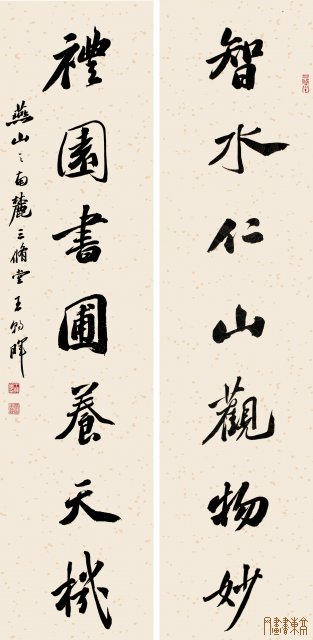 智水仁山觀物妙
禮園書圃養天機
燕山之南麓三脩堂王
暉